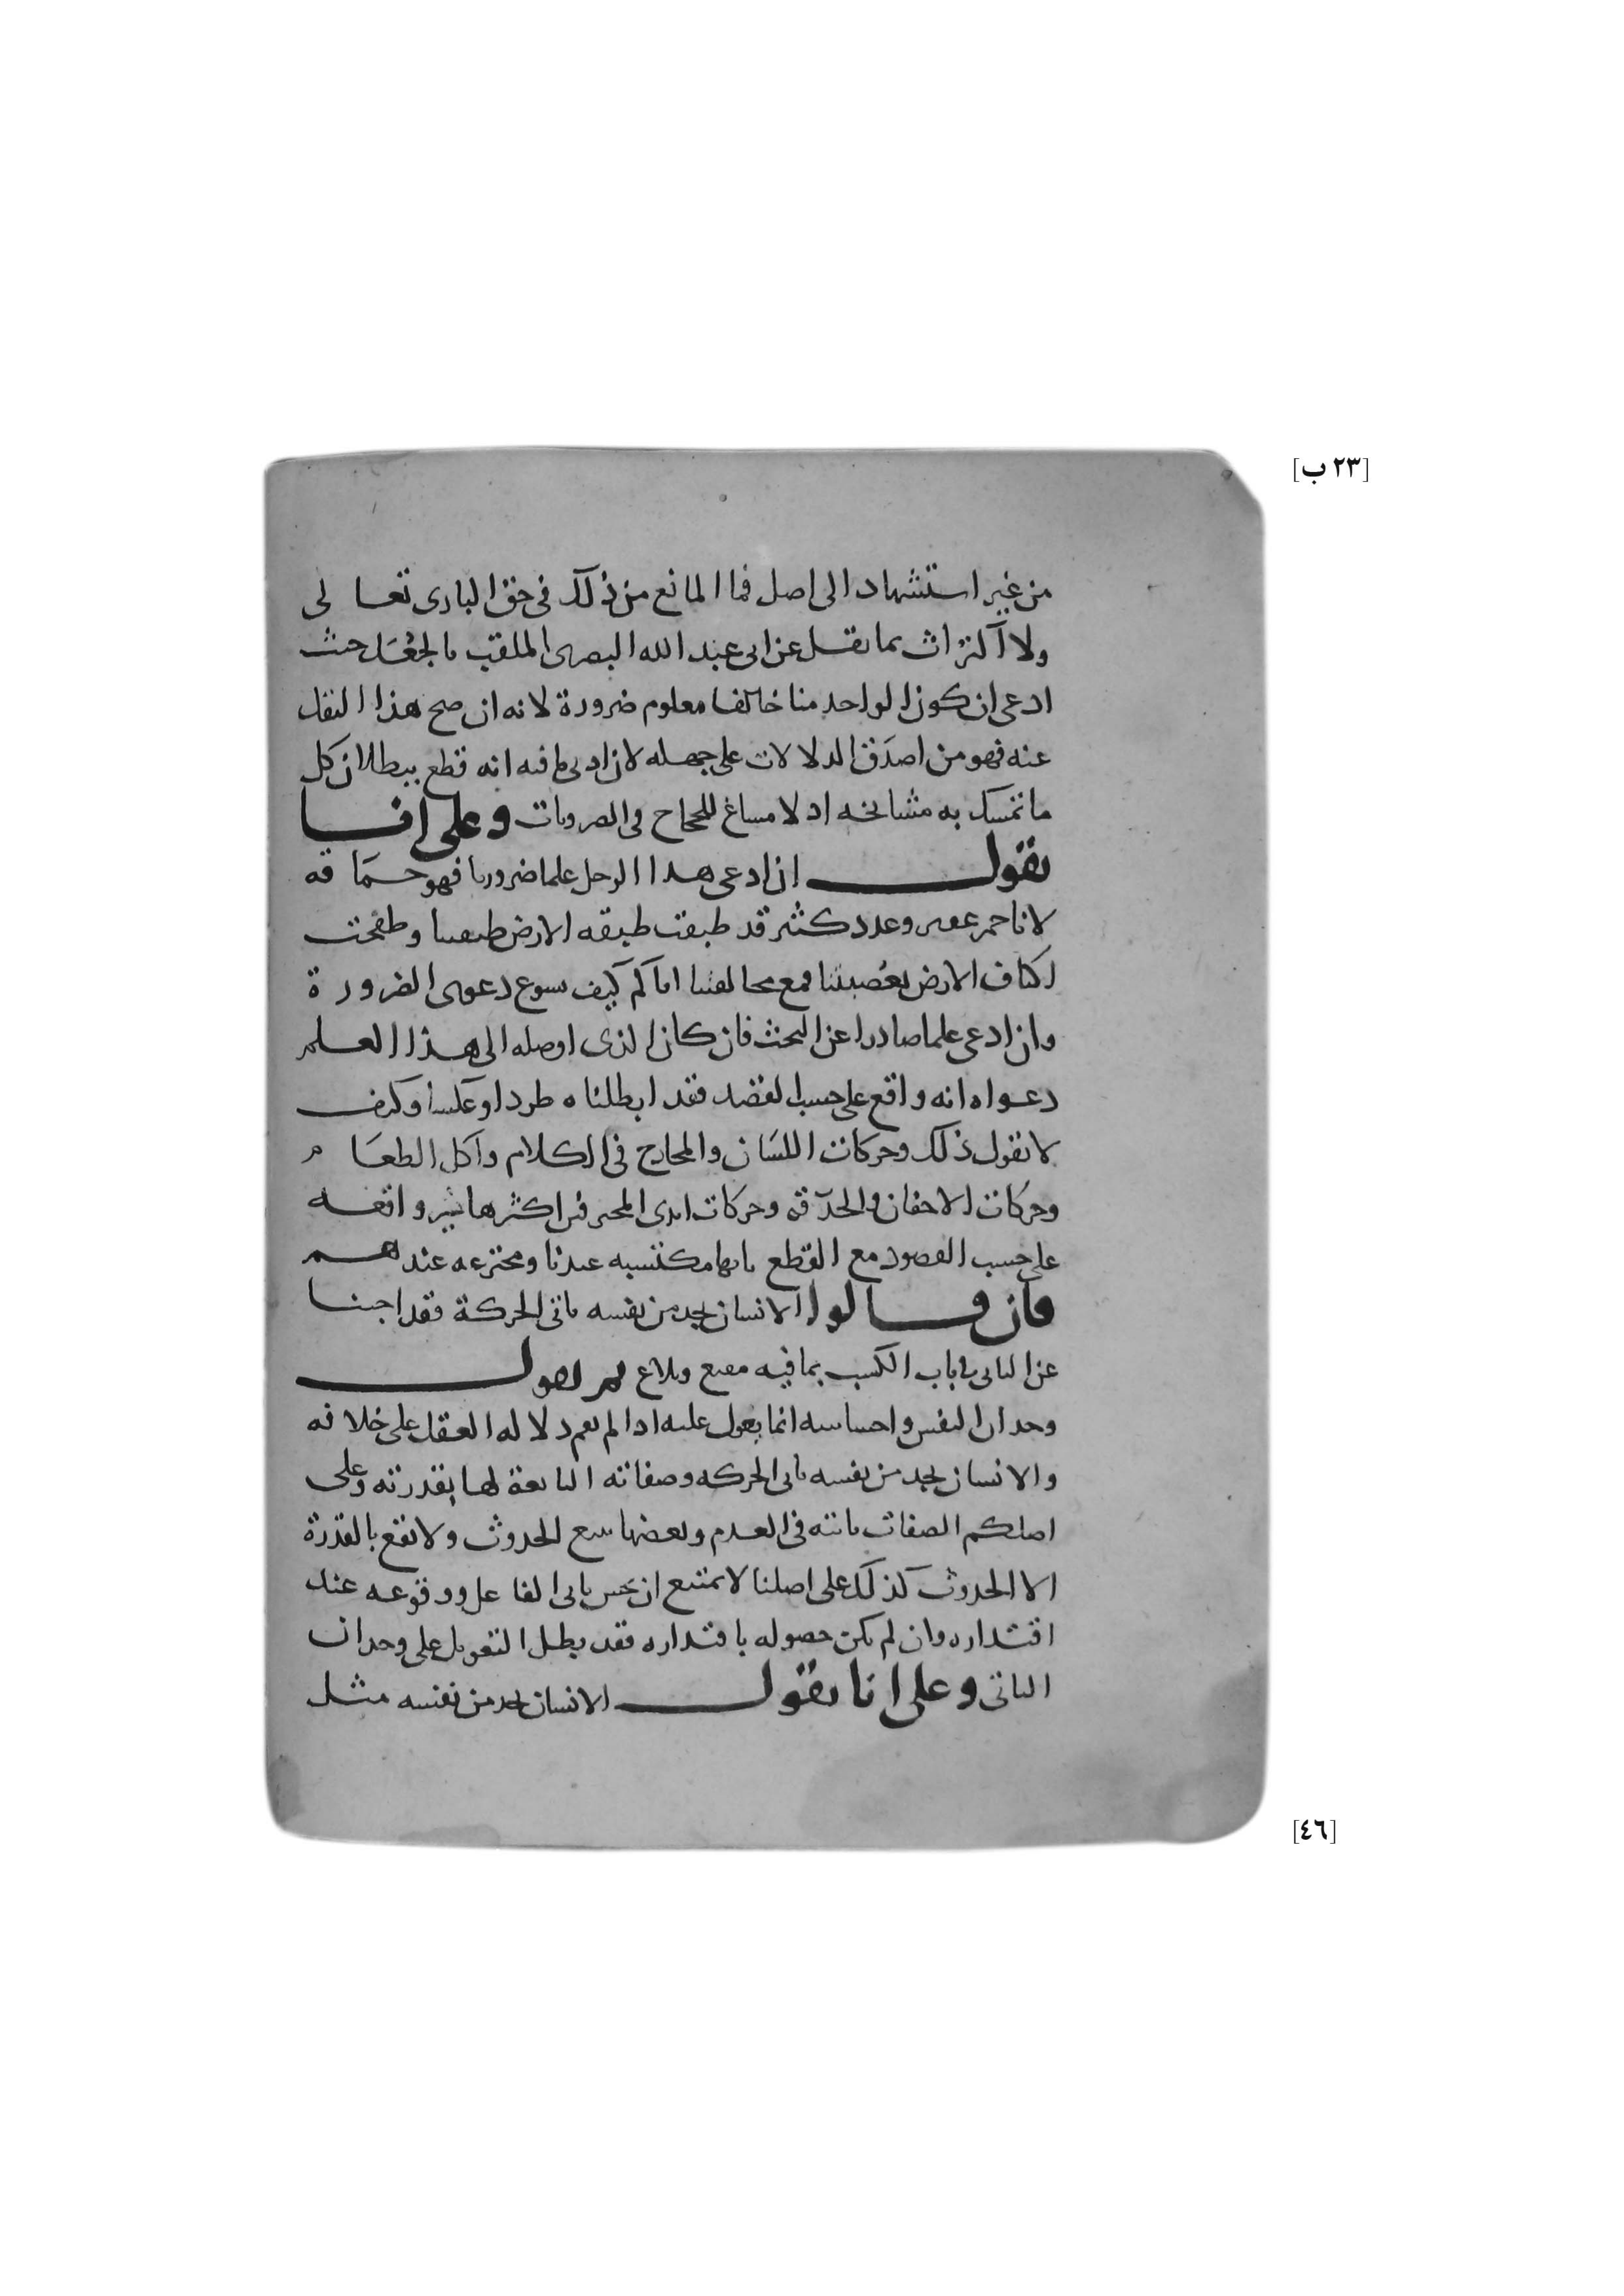 [٢٣ ب]
من غير استشهاد الى اصل فما المانع من ذلك فى حق البارى تعالى
ولا اكتراث بما نقل عن ابى عبد الله البصرى الملقب بالجعل حيث
ادعى ان كون الواحد منا خالقا معلوم ضرورة لانه ان صح هذا النقل
عنه فهو من اصدق الدلالات على جهله لان ادنى ما فيه انه قطع ببطلان كل
ما تمسك به مشايخه اذ لا مساغ للحجاج فى الضروريات وعلى انا
نقول ان ادعى هذا الرجل علما ضروريا فهو حماقه
لانا جم غفير وعدد كثير قد طبقت طبقه الارض طبقتنا وطفحت
اكناف الارض بعصبتنا فمع مخالفتنا اياكم كيف يسوغ دعوى الضرورة
وان ادعى علما صادرا عن البحث فان كان الذى اوصله الى هذا العلم
دعواه انه واقع على حسب القصد فقد ابطلناه طردا وعكسا وكيف
لا نقول ذلك وحركات اللسان والمخارج فى الكلام واكل الطعام
وحركات الاجفان والحدقة وحركات ايدى المحترفين اكثرها غير واقعه
على حسب القصود مع القطع بانها مكتسبه عندنا ومخترعه عندهم
فان قالوا الانسان يجد من نفسه تاتى الحركة فقد اجبنا
عن التاتى فى باب الكسب بما فيه مقنع وبلاغ ثم نقول
وجدان النفس واحساسه انما يعول عليه اذا لم تقم دلاله العقل على خلافه
والانسان يجد من نفسه تاتى الحركه وصفاته التابعة لها بقدرته وعلى
اصلكم الصفات ثابته فى العدم وبعضها يتبع الحدوث ولا تقع بالقدرة
الا الحدوث كذلك على اصلنا لا يمتنع ان يحس تاتى الفاعل ووقوعه عند
اقتداره وان لم يكن حصوله باقتداره فقد بطل التعويل على وجدان
التاتى وعلى انا نقول الانسان يجد من نفسه مثل
[٤٦]